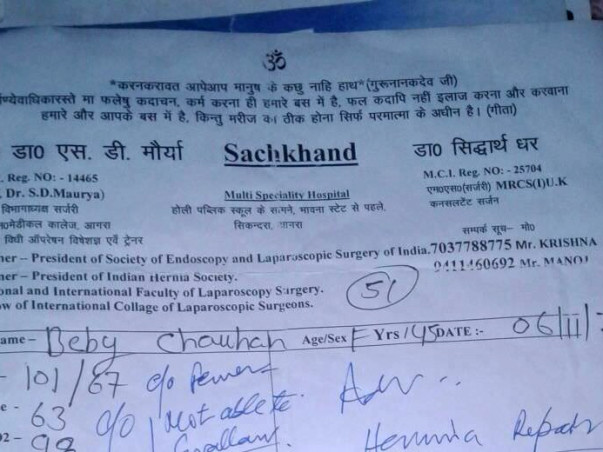 ॐ
"करनकरावत आपेआप मानुष के कछु नाहि हाथ"(गुरूनानकदेव जी)
र्मण्येवाधिकारस्ते मा फलेषु कदाचन, कर्म करना ही हमारे बस में है, फल कदापि नहीं इलाज करना और करवाना
हमारे और आपके बस में है, किन्तु मरीज का ठीक होना सिर्फ परमात्मा के अधीन है। (गीता)
डा0 एस. डी. मौर्या Sachkhand डा0 सिद्धार्थ धर
. Reg. NO: - 14465 M.C.I. Reg. NO: - 25704
Dr. S.D.Maurya) Multi Speciality Hospital एम0एस0(सर्जरी) MRCS(I)U.K
विभागाध्यक्ष सर्जरी होली पब्लिक स्कूल के सामने, भावना स्टेट से पहले, कनसलटेंट सर्जन
मेडीकल कालेज, आगरा सिकन्दरा, आगरा सम्पर्क सूत्र– मो0
विधी ऑपरेषन विषेशज्ञ एवें ट्रेनर
ner – President of Society of Endoscopy and Laparoscopic Surgery of India. 7037788775 Mr. KRISHNA
ner – President of Indian Hernia Society. 9411460692 Mr. MANOJ
onal and International Faculty of Laparoscopy Surgery.
ow of International Collage of Laparoscopic Surgeons.
51
ame – Beby Chauhan Age/Sex F Yrs / 45 DATE :- 06/11/
- 101/67 c/o Adv
e - 63 c/o not able to
02 - 98 Hernia Repair